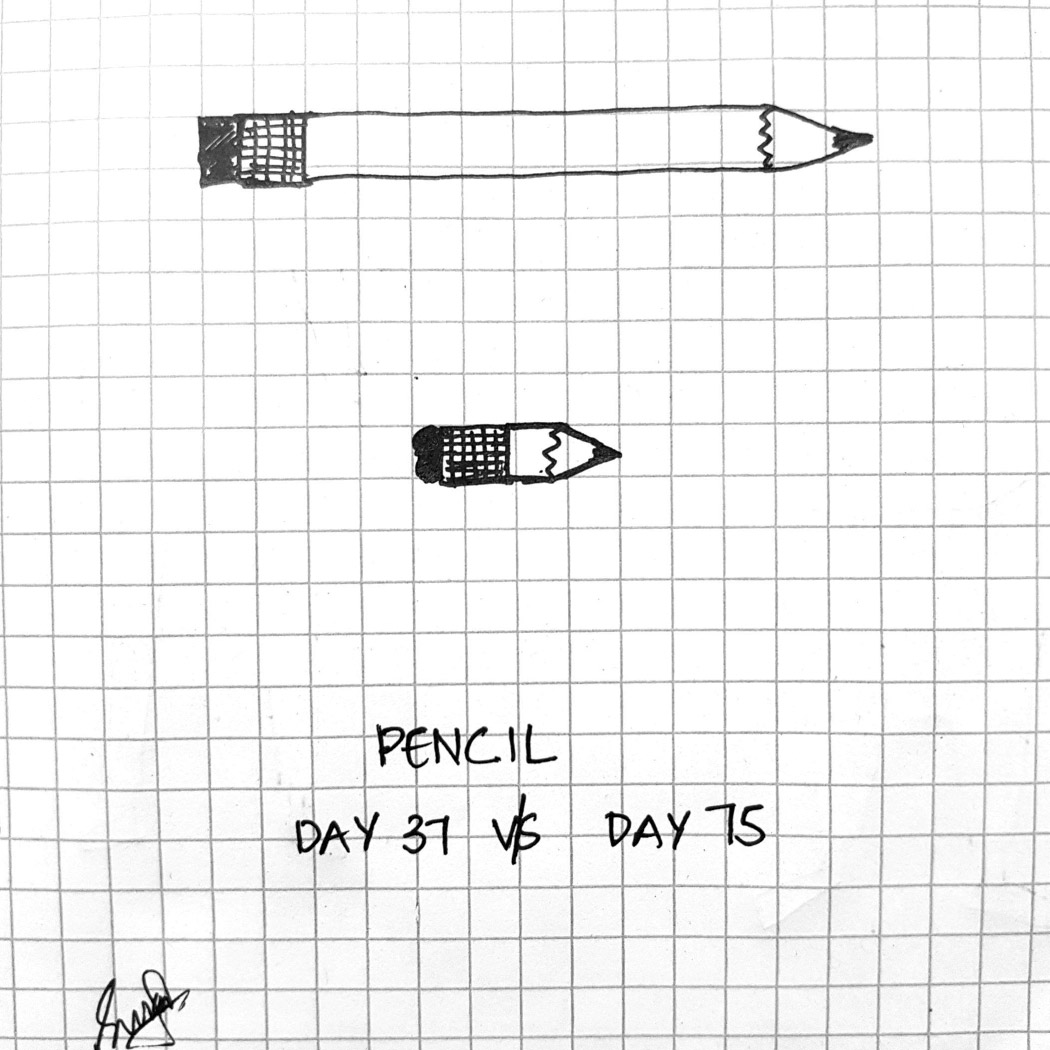 PENCIL
DAY 37 V/S DAY 75